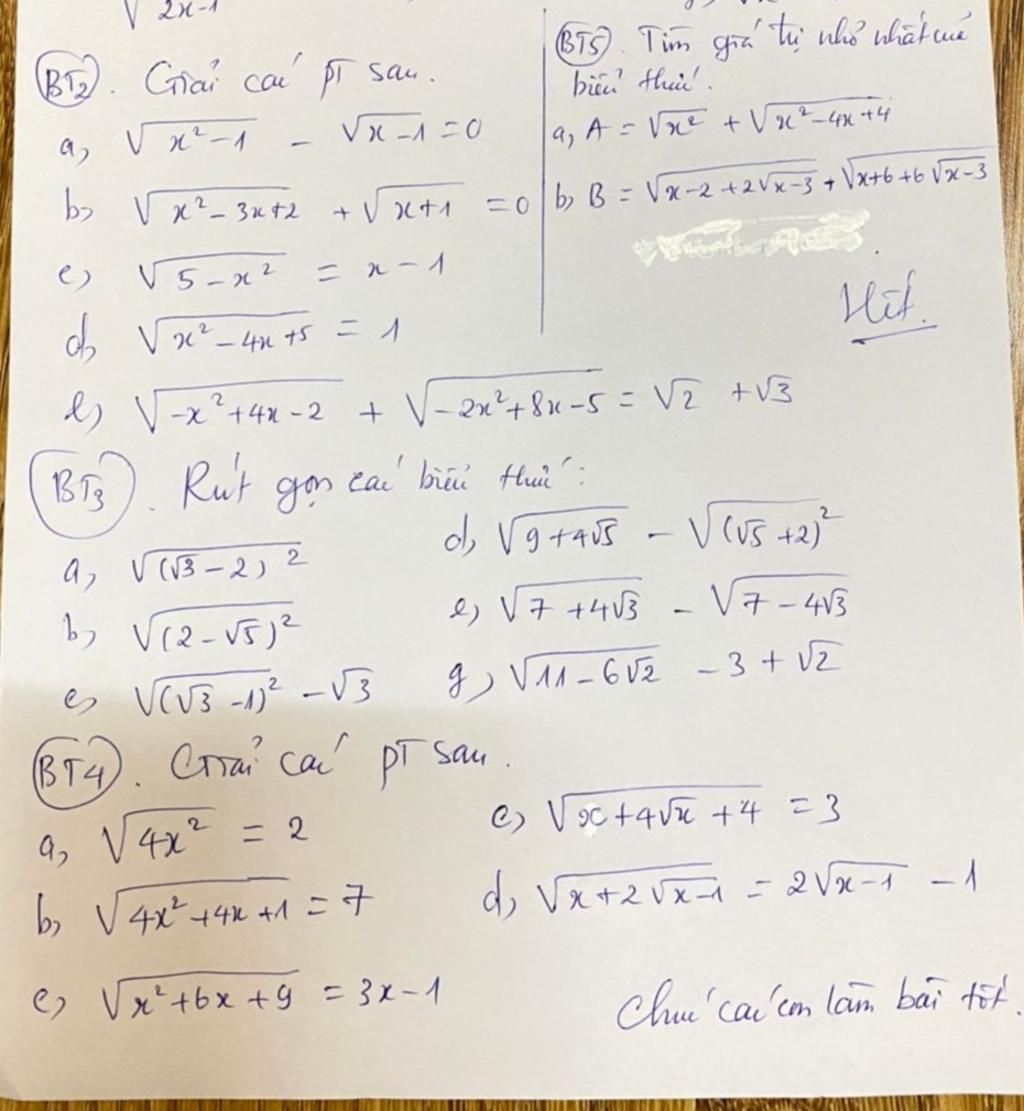 √2x-1
BT2. Giải các pT sau.
a, √(x²-1) - √(x-1) = 0
b, √(x²-3x+2) + √(x+1) = 0
c, √(5-x²) = x-1
d, √(x²-4x+5) = 1
e, √(-x²+4x-2) + √(-2x²+8x-5) = √2 + √3
BT5. Tìm giá trị nhỏ nhất của
biểu thức.
a, A = √(x²) + √(x²-4x+4)
b, B = √(x-2+2√(x-3)) + √(x+6+6√(x-3))
Hết.
BT3. Rút gọn các biểu thức:
a, √((√3-2)²)
b, √((2-√5)²)
c, √((√3-1)²) - √3
d, √(9+4√5) - √((√5+2)²)
e, √(7+4√3) - √(7-4√3)
g, √(11-6√2) - 3 + √2
BT4. Giải các pT sau.
a, √(4x²) = 2
b, √(4x²+4x+1) = 7
c, √(x²+6x+9) = 3x-1
c, √(x+4√x+4) = 3
d, √(x+2√(x-1)) = 2√(x-1) - 1
Chúc các con làm bài tốt.